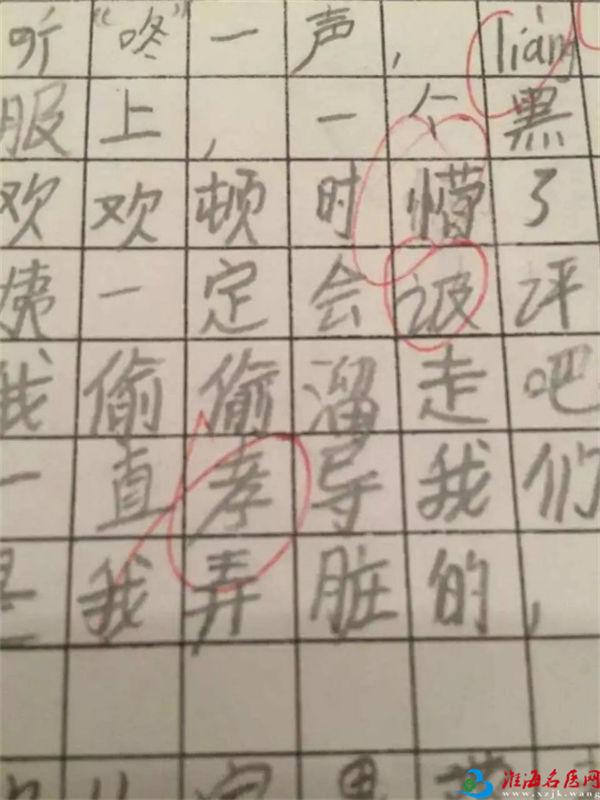 听“咚”一声，liáng
服上，一个黑
欢欢顿时懵了
姨一定会诐评
我偷偷溜走吧
一直孝导我们
是我弄脏的，
淮海名医网
www.xzjk.wang